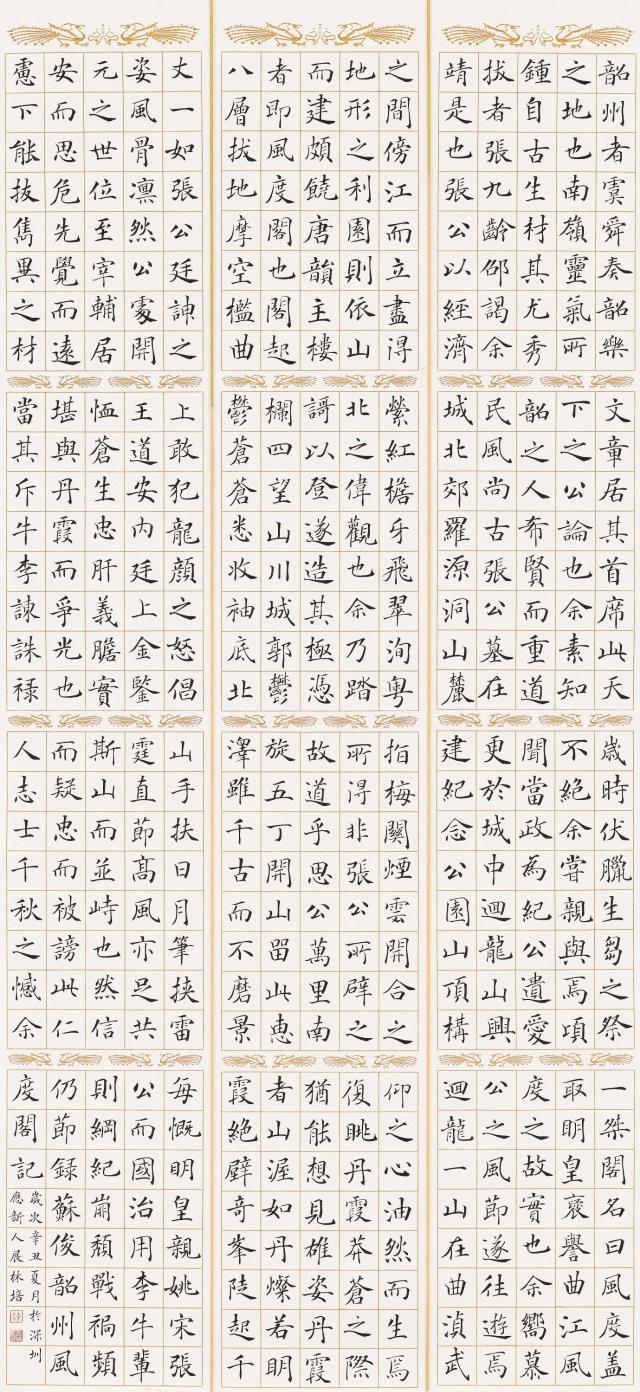 韶州者虞舜奏韶樂
之地也南嶺靈氣所
鍾自古生材其尤秀
拔者張九齡邵謁余
靖是也張公以經濟
文章居其首席此天
下之公論也余素知
韶之人布賢而重道
民風尚古張公墓在
城北郊羅源洞山麓
歲時伏臘生芻之祭
不絕余嘗親與焉項
聞當政為紀公遺愛
更於城中迴龍山興
建紀念公園山頂構
一桀閣名曰風度蓋
取明皇褒譽曲江風
度之故實也余嚮慕
公之風節遂往遊焉
迴龍一山在曲湞武
之間傍江而立盡得
地形之利園則依山
而建頗饒唐韻主樓
者即風度閣也閣起
八層拔地摩空檻曲
縈紅檐牙飛翠洵粵
北之偉觀也余乃踏
謌以登遂造其極憑
欄四望山川城郭鬱
鬱蒼蒼悉收袖底北
指梅關煙雲開合之
所得非張公所辟之
故道乎思公萬里南
旋五丁開山留此惠
澤雖千古而不磨景
仰之心油然而生焉
復眺丹霞莽蒼之際
猶能想見雄姿丹霞
者山渥如丹燦若明
霞絕壁奇峯陡起千
丈一如張公廷諍之
姿風骨凛然公處開
元之世位至宰輔居
安而思危先覺而遠
慮下能拔雋異之材
上敢犯龍顏之怒倡
王道安內廷上金鑒
恤蒼生忠肝義膽實
堪與丹霞而爭光也
當其斥牛李諫誅祿
山手扶日月筆挾雷
霆直節高風亦足共
斯山而並峙也然信
而疑忠而被謗此仁
人志士千秋之憾余
每慨明皇親姚宋張
公而國治用李牛輩
則綱紀崩頹戰禍頻
仍節録蘇俊韶州風
度閣記
歲次辛丑夏月於深圳
應新人展林培